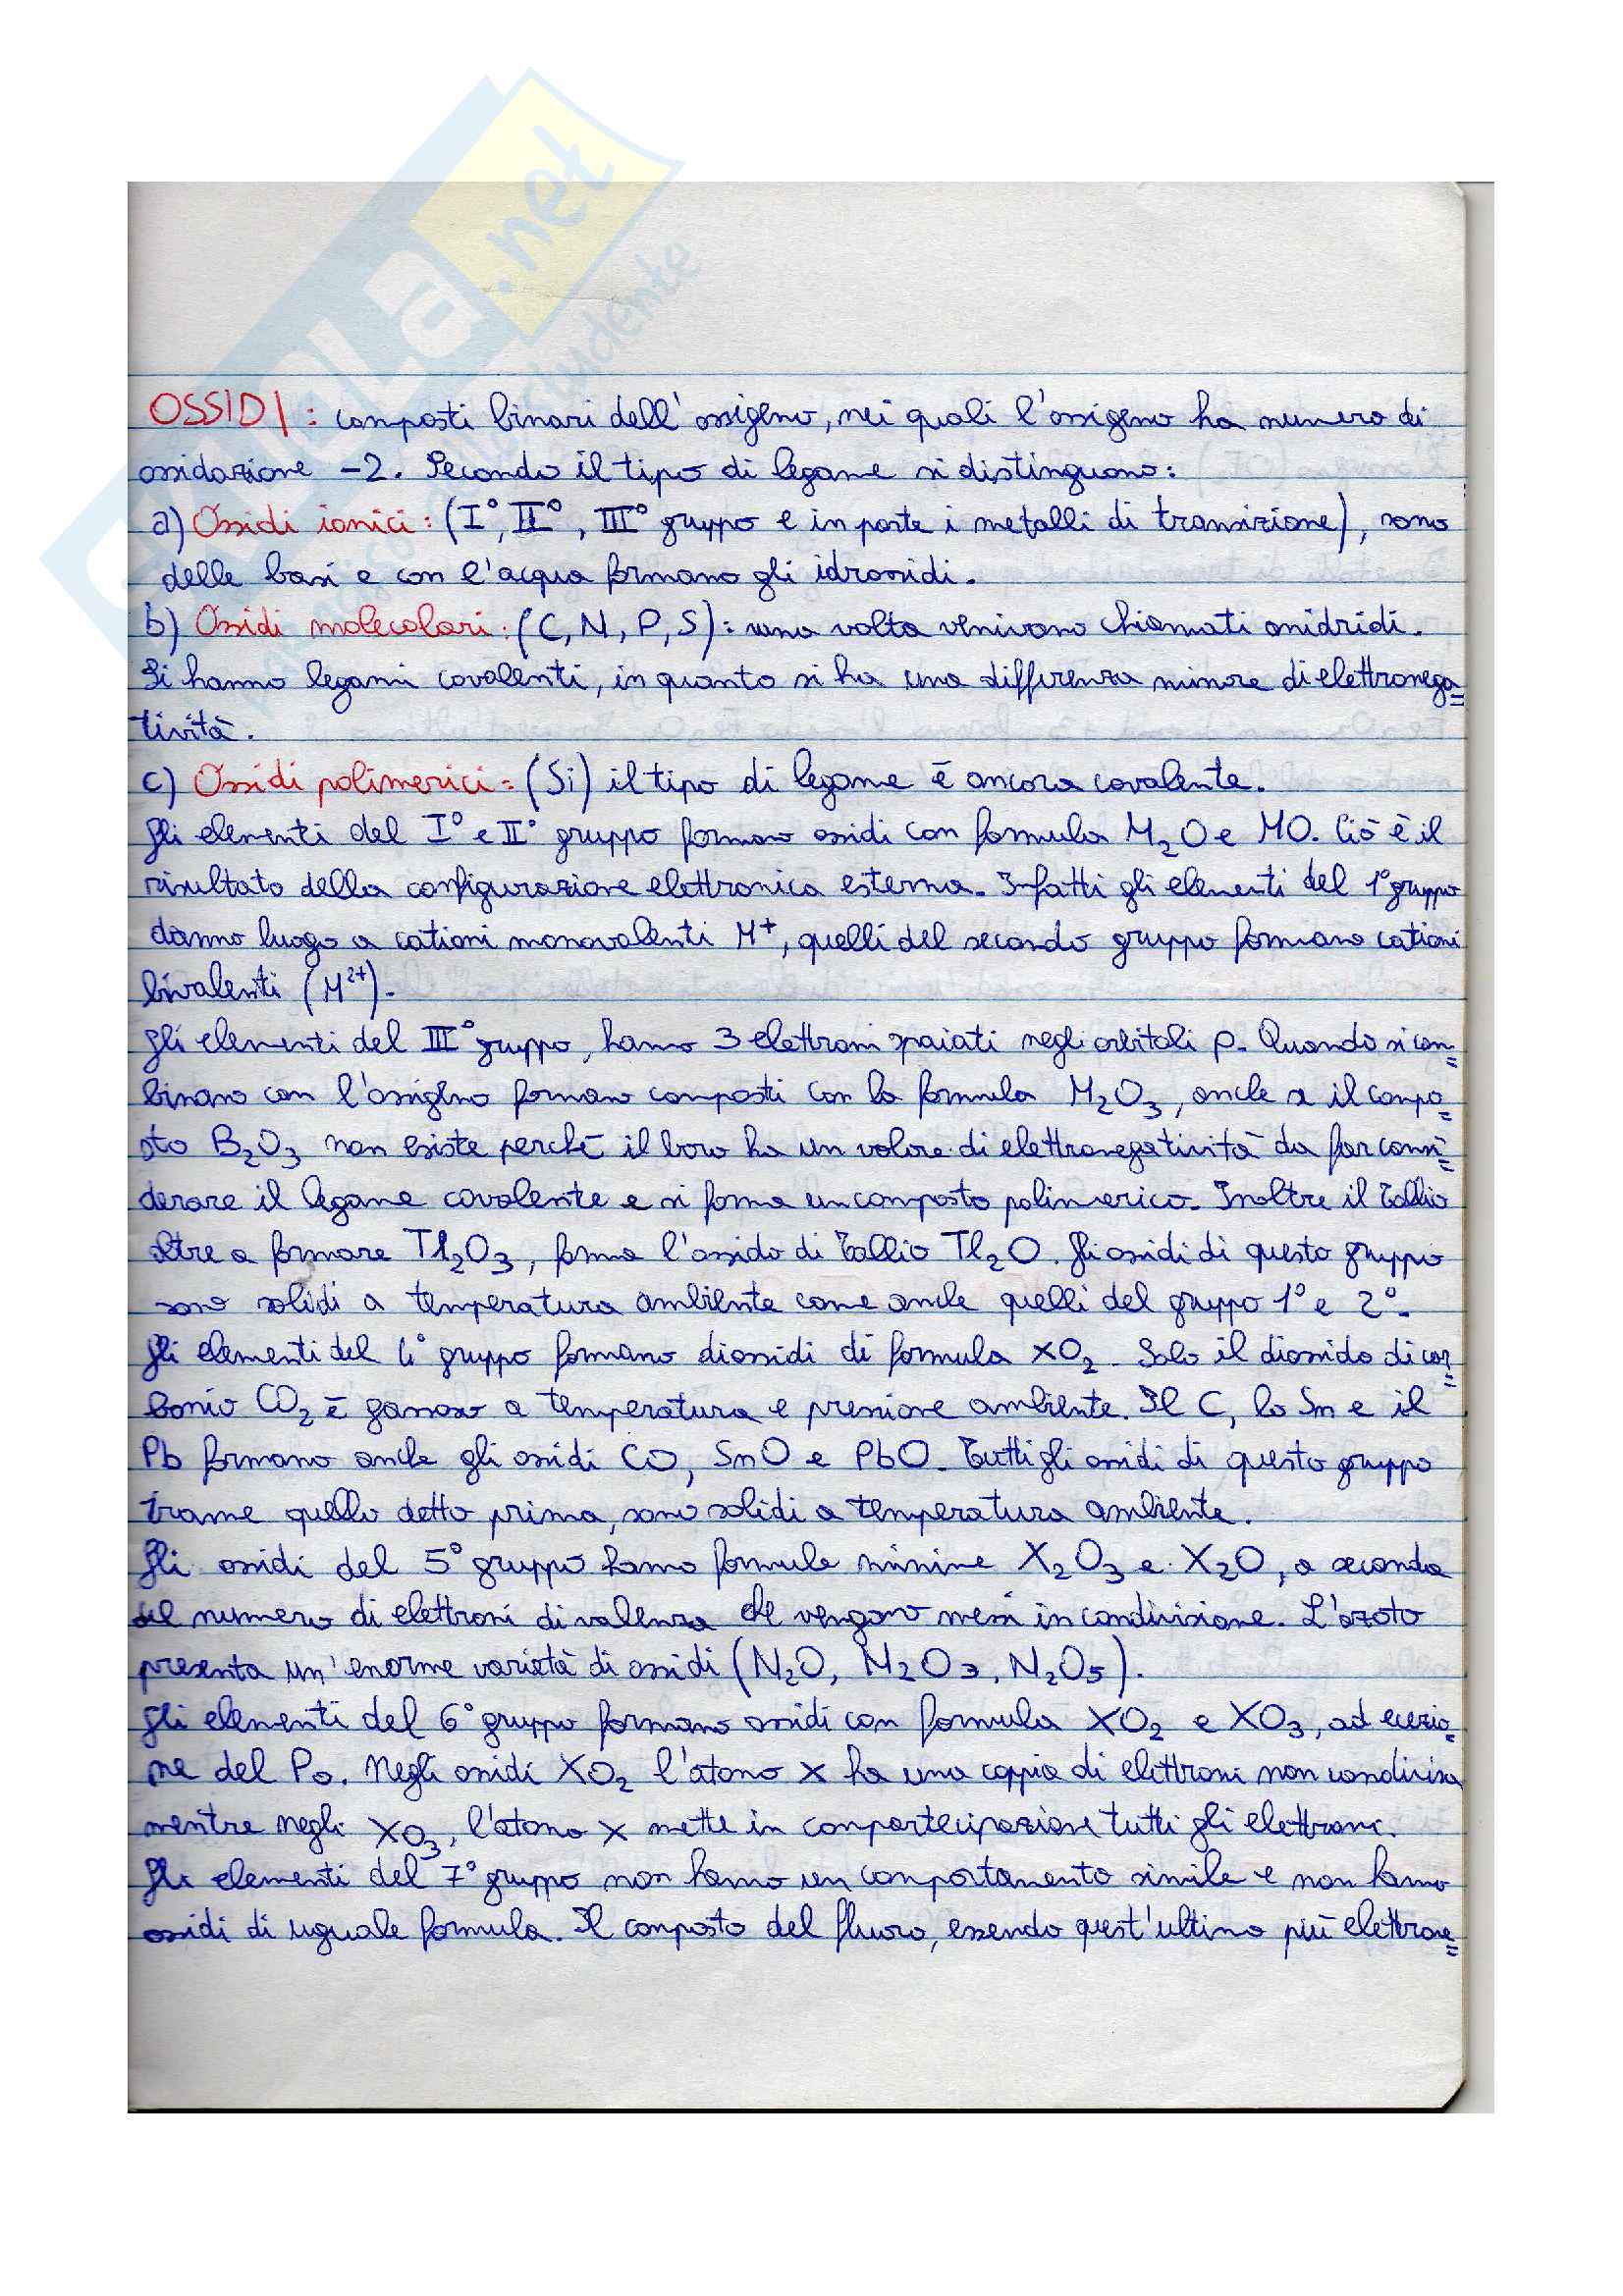 OSSIDI: composti binari dell'ossigeno, nei quali l'ossigeno ha numero di
ossidazione -2. Secondo il tipo di legame si distinguono:
a) Ossidi ionici: (I°, II°, III° gruppo e in parte i metalli di transizione), sono
delle basi e con l'acqua formano gli idrossidi.
b) Ossidi molecolari: (C, N, P, S): una volta venivano chiamati anidridi.
Si hanno legami covalenti, in quanto si ha una differenza minore di elettronega=
tività.
c) Ossidi polimerici: (Si) il tipo di legame è ancora covalente.
Gli elementi del I° e II° gruppo formano ossidi con formula M₂O e MO. Ciò è il
risultato della configurazione elettronica esterna. Infatti gli elementi del 1° gruppo
danno luogo a cationi monovalenti M⁺, quelli del secondo gruppo formano cationi
bivalenti (M²⁺).
Gli elementi del III° gruppo, hanno 3 elettroni spaiati negli orbitali p. Quando si com=
binano con l'ossigeno formano composti con la formula M₂O₃, anche se il compo=
sto B₂O₃ non esiste perché il boro ha un valore di elettronegatività da far consi=
derare il legame covalente e si forma un composto polimerico. Inoltre il Tallio
oltre a formare Tl₂O₃, forma l'ossido di Tallio Tl₂O. Gli ossidi di questo gruppo
sono solidi a temperatura ambiente come anche quelli del gruppo 1° e 2°.
Gli elementi del 4° gruppo formano diossidi di formula XO₂. Solo il diossido di car=
bonio CO₂ è gassoso a temperatura e pressione ambiente. Il C, lo Sn e il
Pb formano anche gli ossidi CO, SnO e PbO. Tutti gli ossidi di questo gruppo
tranne quello detto prima, sono solidi a temperatura ambiente.
Gli ossidi del 5° gruppo hanno formule minime X₂O₃ e X₂O, a seconda
del numero di elettroni di valenza che vengono messi in condivisione. L'azoto
presenta un'enorme varietà di ossidi (N₂O, N₂O₃, N₂O₅).
Gli elementi del 6° gruppo formano ossidi con formula XO₂ e XO₃, ad eccezio=
ne del Po. Negli ossidi XO₂ l'atomo X ha una coppia di elettroni non condivisa
mentre negli XO₃, l'atomo X mette in compartecipazione tutti gli elettroni.
Gli elementi del 7° gruppo non hanno un comportamento simile e non hanno
ossidi di uguale formula. Il composto del fluoro, essendo quest'ultimo più elettrone=